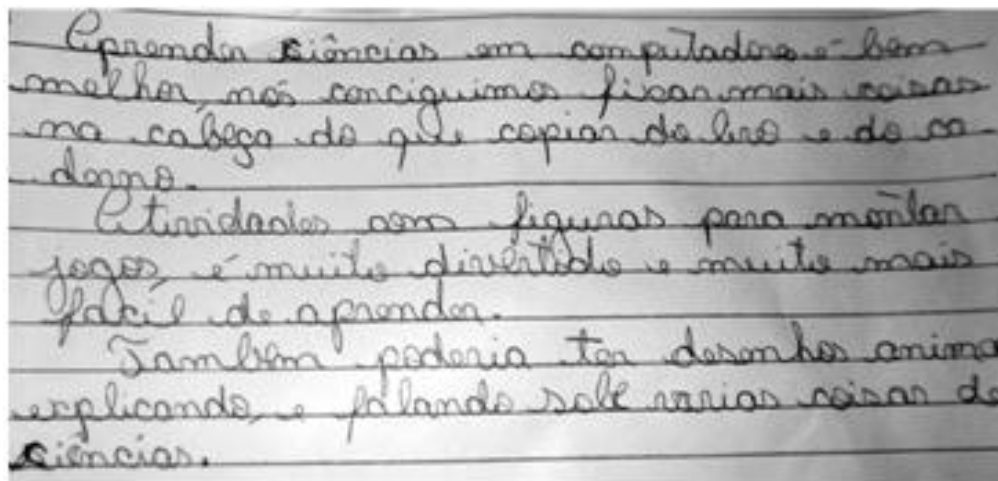 Aprender ciências em computadores é bem
melhor nós conciguimos fixar mais coisas
na cabeça do que copiar do livro e do ca-
derno.
Atividades com figuras para montar
jogos, é muito divertido e muito mais
fácil de aprender.
Também poderia ter desenhos anima
explicando e falando sobe varias coisas de
ciências.